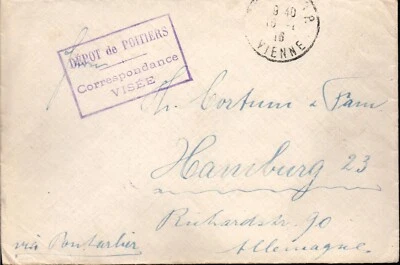 DÉPOT de POITIERS
Correspondance
VISÉE
9 40
16
VIENNE
Cortum & Fam
Hamburg 23
Richardstr. 90
Allemagne.
via Pontarlier